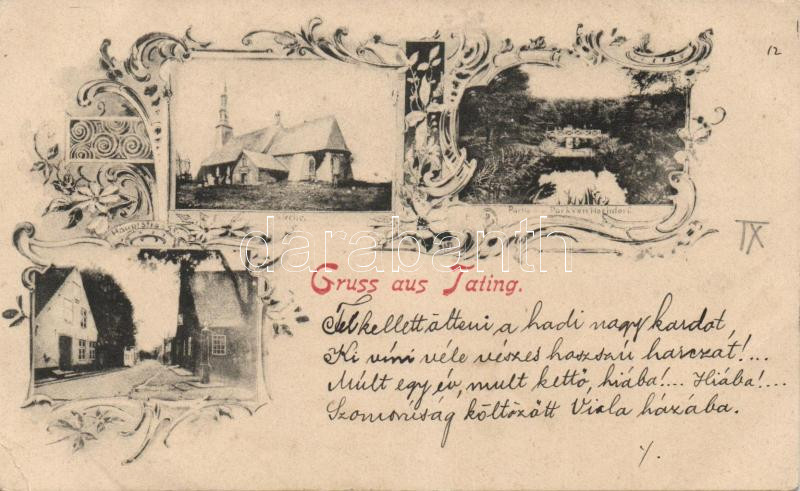 12
Kirche.
Partie Park von Hochdorf.
Hauptstr.
IX
darabanth
Gruss aus Tating.
Felkellett ölteni a hadi nagy kardot,
Ki víni véle vészes hosszú harczat!...
Múlt egy év, mult kettö, hiába!... Hiába!...
Szomorúság költözött Viola házába.
Y.